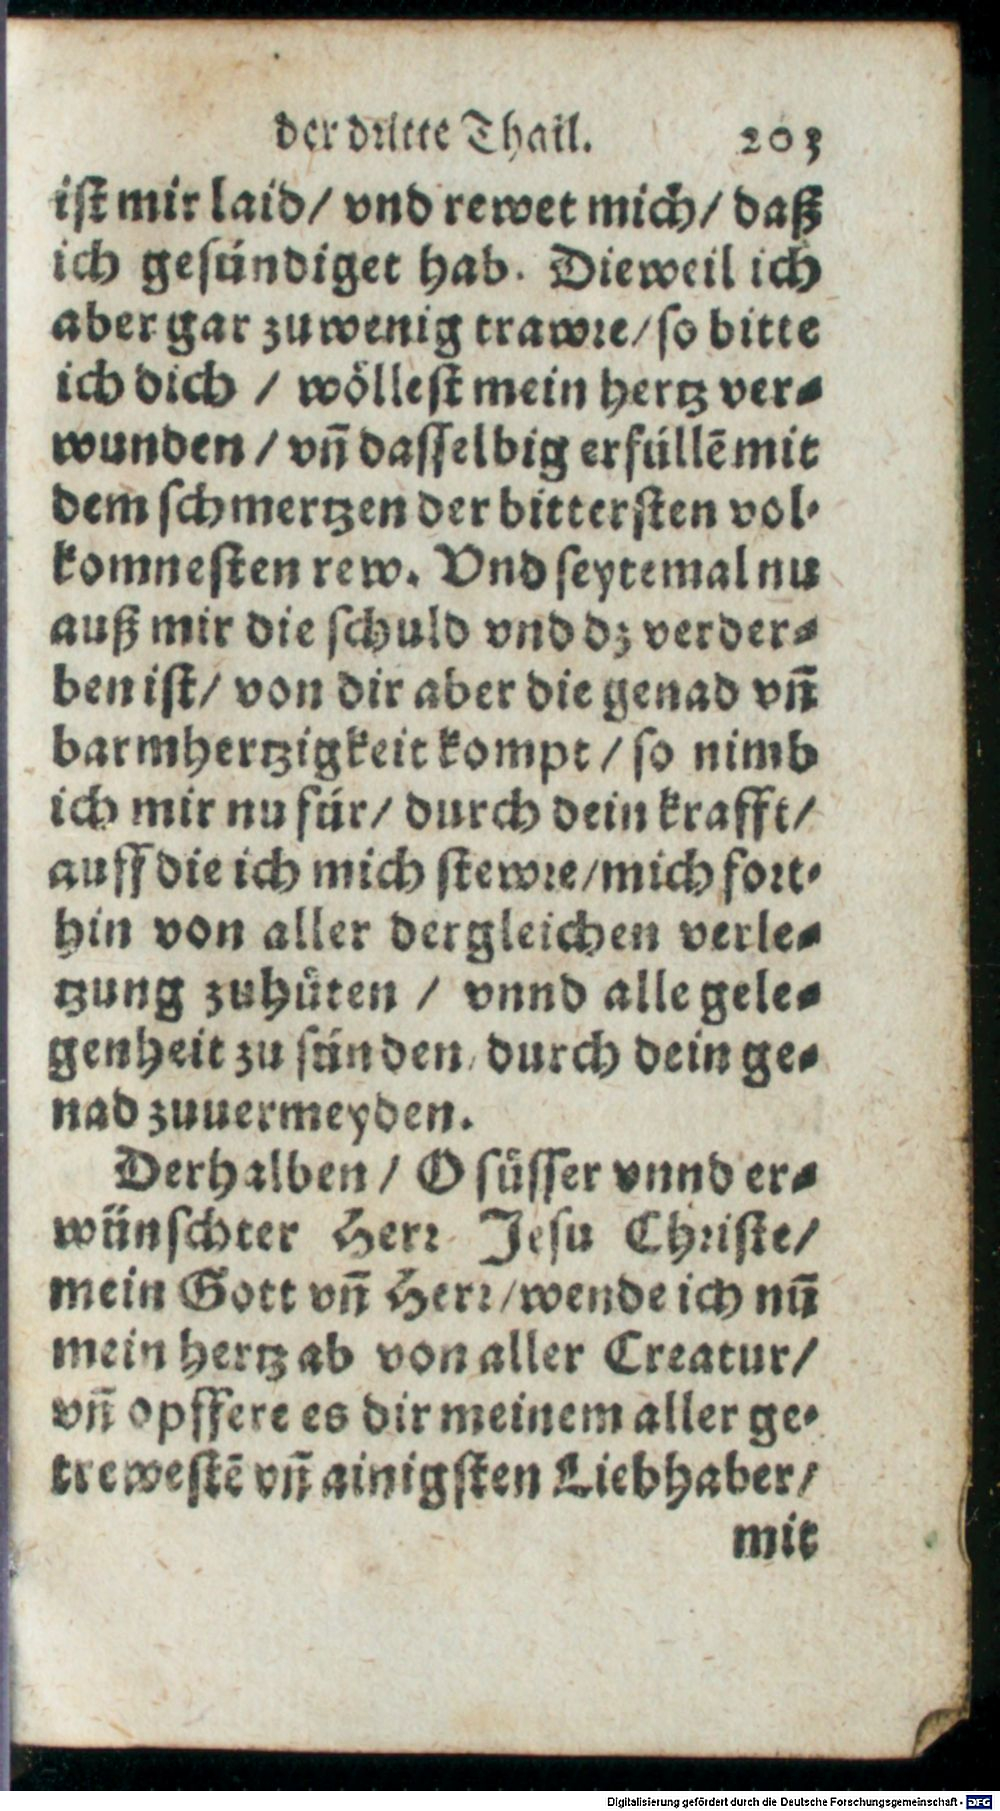 der dritte Thail. 203
ist mir laid/ vnd rewet mich/ daß
ich gesündiget hab. Dieweil ich
aber gar zu wenig trawre/ so bitte
ich dich / wöllest mein hertz ver-
wunden / vñ dasselbig erfüllẽ mit
dem schmertzen der bittersten vol-
komnesten rew. Vnd seytemal nu
auß mir die schuld vnd dz verder-
ben ist/ von dir aber die genad vñ
barmhertzigkeit kompt / so nimb
ich mir nu für/ durch dein krafft/
auff die ich mich stewre/ mich fort-
hin von aller dergleichen verle-
tzung zuhüten / vnnd alle gele-
genheit zu sünden/ durch dein ge-
nad zuuermeyden.
Derhalben / O süsser vnnd er-
wünschter Herr Jesu Christe/
mein Gott vñ Herr/ wende ich nũ
mein hertz ab von aller Creatur/
vñ opffere es dir meinem aller ge-
trewestẽ vñ ainigsten Liebhaber/
mit
Digitalisierung gefördert durch die Deutsche Forschungsgemeinschaft - DFG